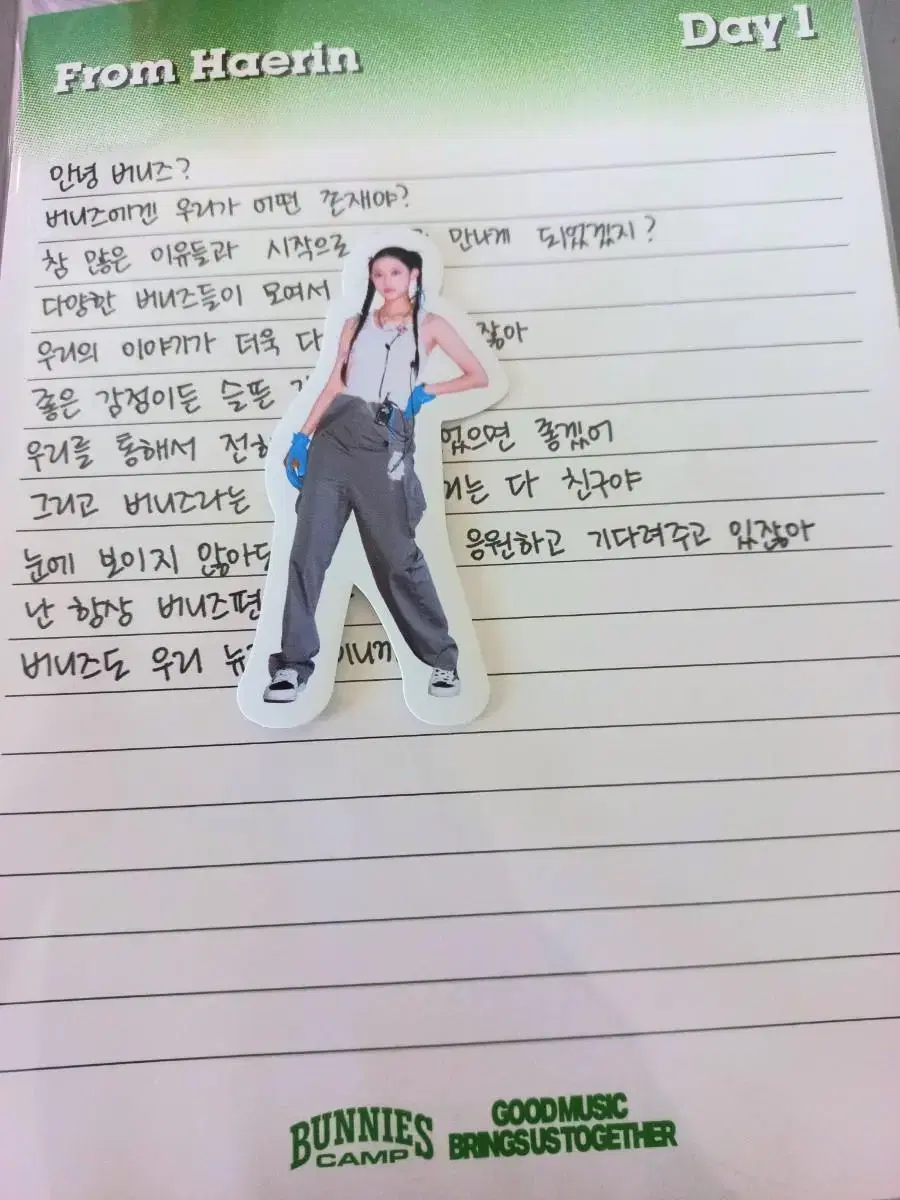 From Haerin
Day 1
안녕 버니즈?
버니즈에겐 우리가 어떤 존재야?
참 많은 이유들과 시작으로 만나게 되었겠지?
다양한 버니즈들이 모여서
우리의 이야기가 더욱 다 잖아
좋은 감정이든 슬픈
우리를 통해서 전하 었으면 좋겠어
그리고 버니즈라는 거는 다 친구야
눈에 보이지 않아도 응원하고 기다려주고 있잖아
난 항상 버니즈편
버니즈도 우리 뉴 이니까
BUNNIES CAMP
GOOD MUSIC
BRINGS US TOGETHER